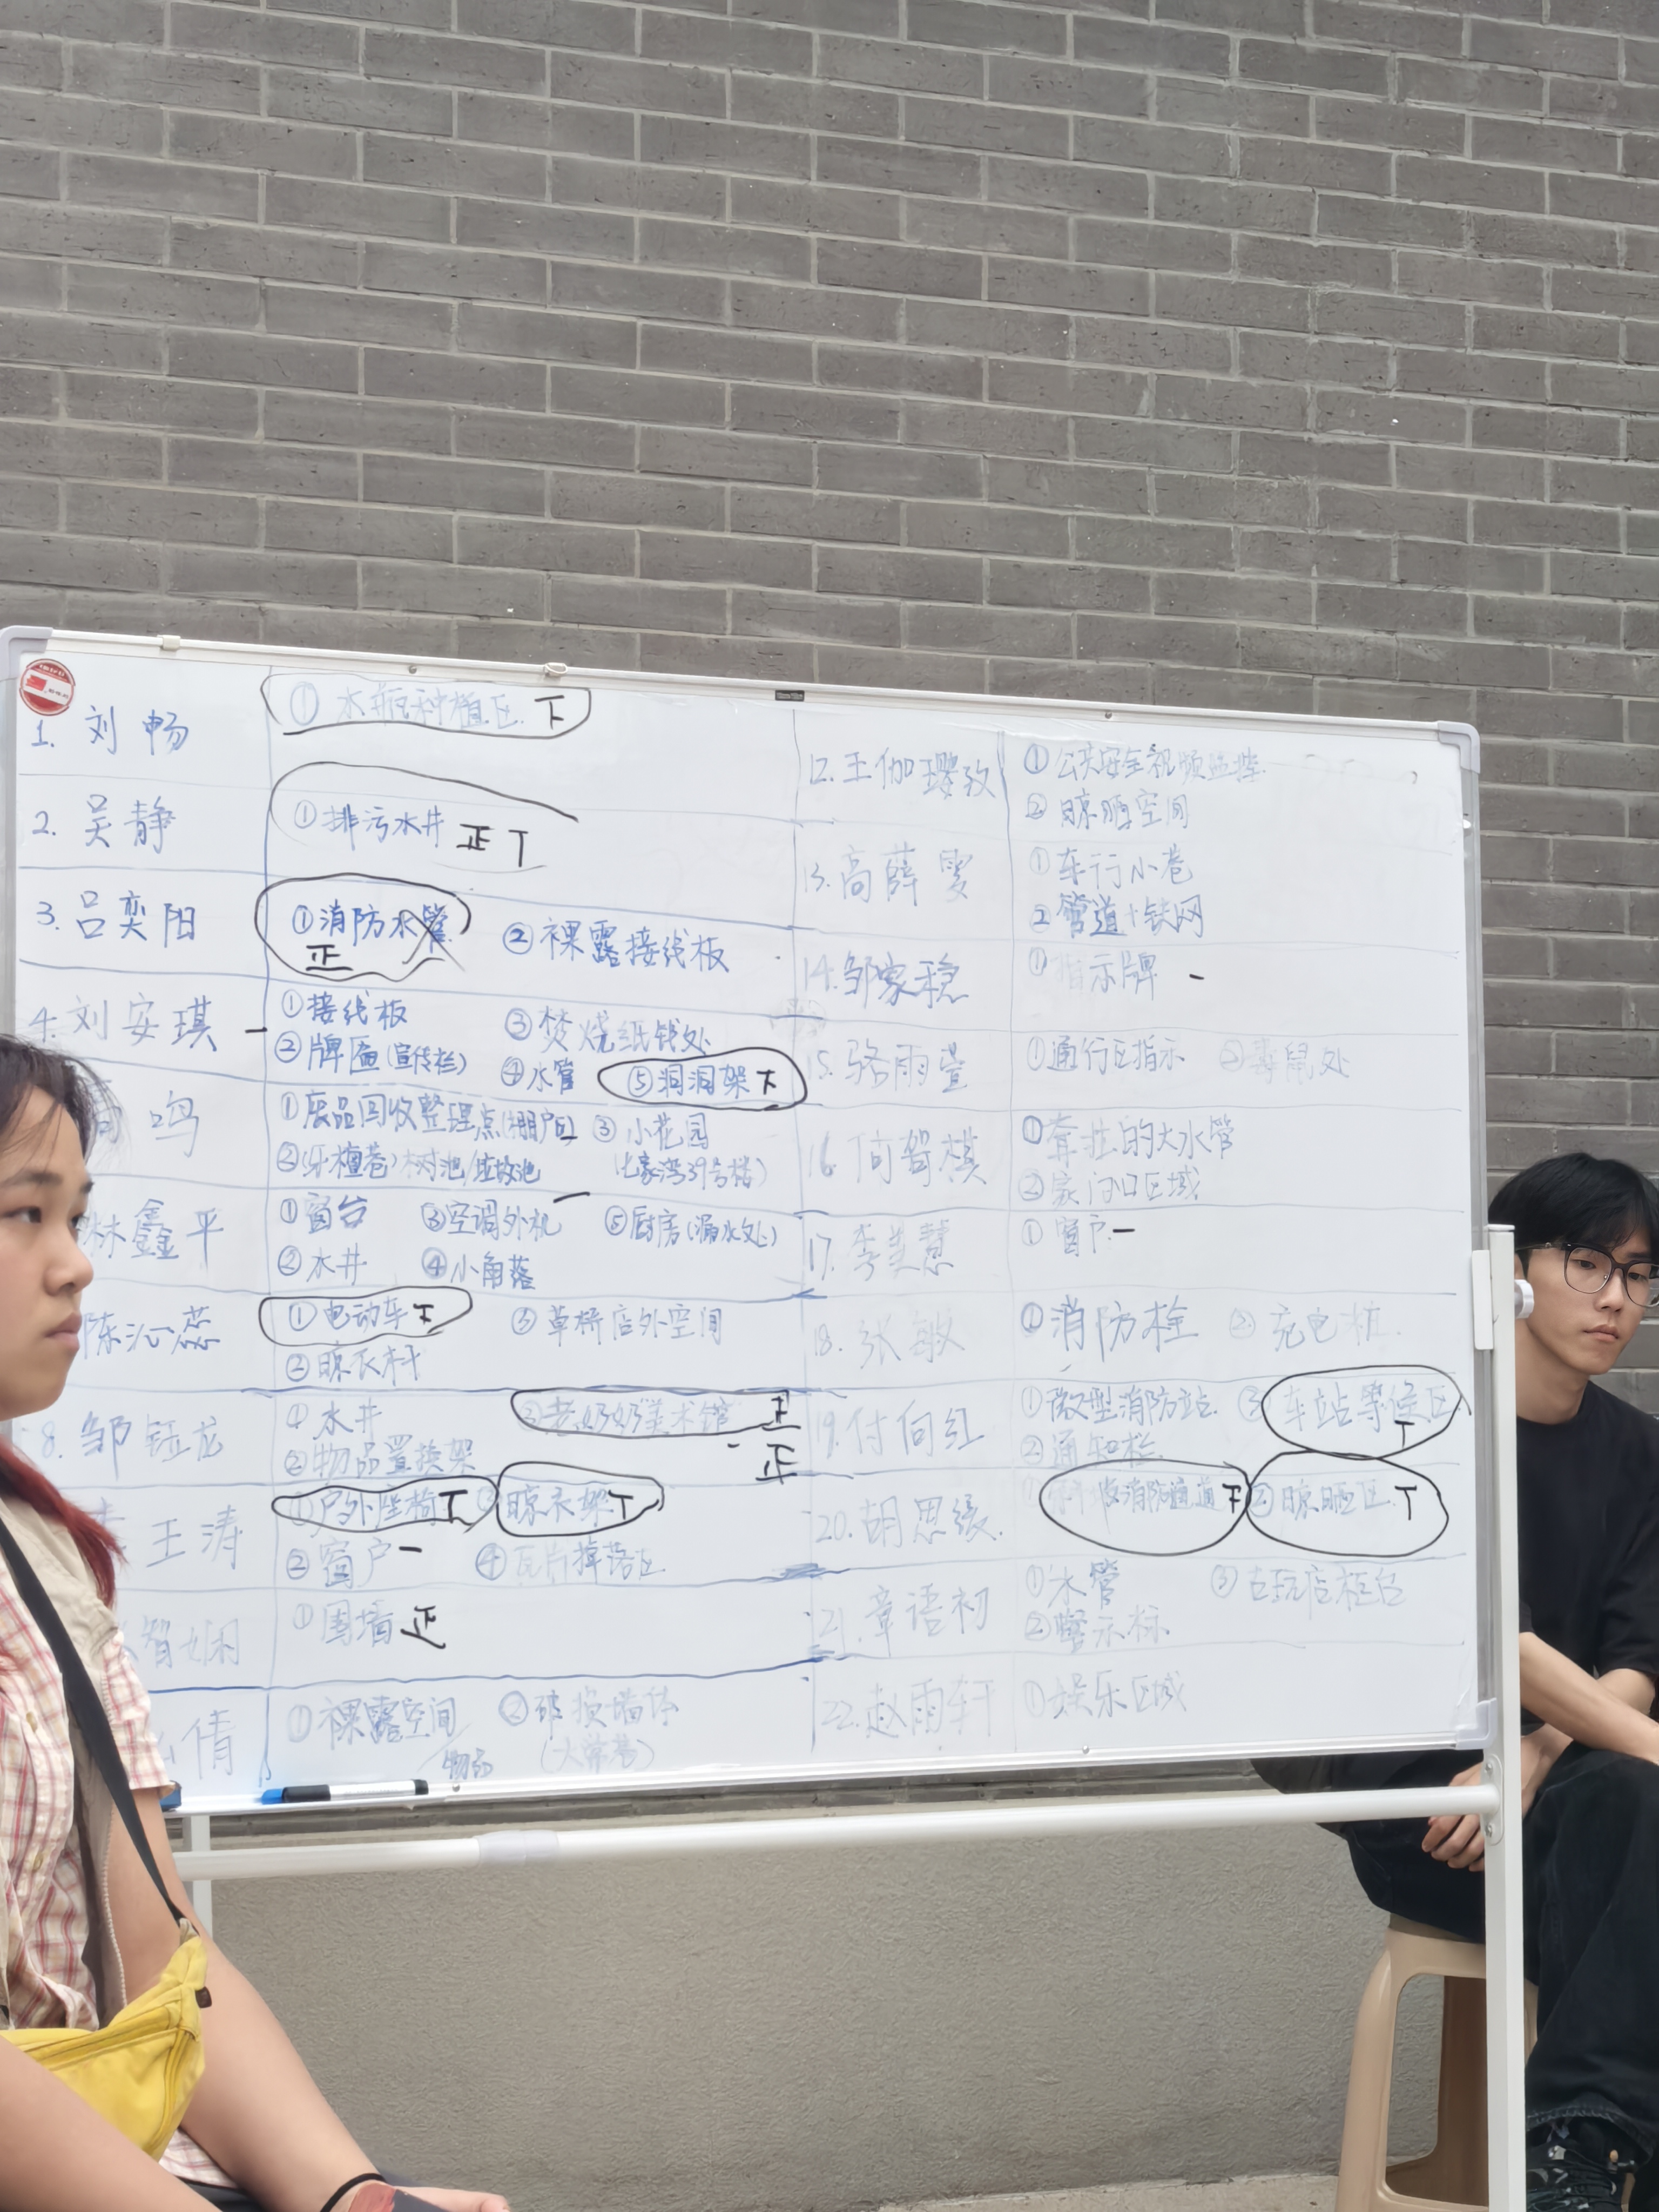 1. 刘畅
① 水瓶种植区 下
2. 吴静
① 排污水井 正丅
3. 吕奕阳
① 消防水管 正
② 裸露接线板
4. 刘安琪 一
① 接线板
③ 焚烧纸钱处
② 牌匾(宣传栏)
④ 水管
⑤ 洞洞架 下
鸣
① 废品回收整理点(棚户区)
③ 小花园
② (牙檀巷)树池/垃圾池
39号楼)
林鑫平
① 窗台
③ 空调外机 一
⑤ 厨房(漏水处)
② 水井
④ 小角落
陈沁蕊
① 电动车 下
③ 草桥店外空间
② 晾衣杆
8. 邹钰龙
① 水井
③ 老奶奶美术馆 正
正
② 物品置换架
王涛
① 户外座椅
③ 晾衣架 丅
② 窗户 一
④ 瓦片掉落区
智娴
① 围墙 正
倩
① 裸露空间
② 破损墙体
12. 王伽璎孜
① 公共安全视频监控
② 晾晒空间
13. 高薛雯
① 车行小巷
② 管道+铁网
14. 邹家稳
① 指示牌 一
15. 骆雨萱
① 通行区指示
② 毒鼠处
16. 何智棋
① 弯拄的大水管
② 家门口区域
17. 李美慧
① 窗户 一
18. 张敏
① 消防栓
② 充电桩
19. 付向红
① 微型消防站
③ 车站等候区 丅
② 通知栏
20. 胡思缘
消防通道 下
② 晾晒区 丅
21. 章语初
① 水管
③ 古玩店柜台
② 警示标
22. 赵雨轩
① 娱乐区域